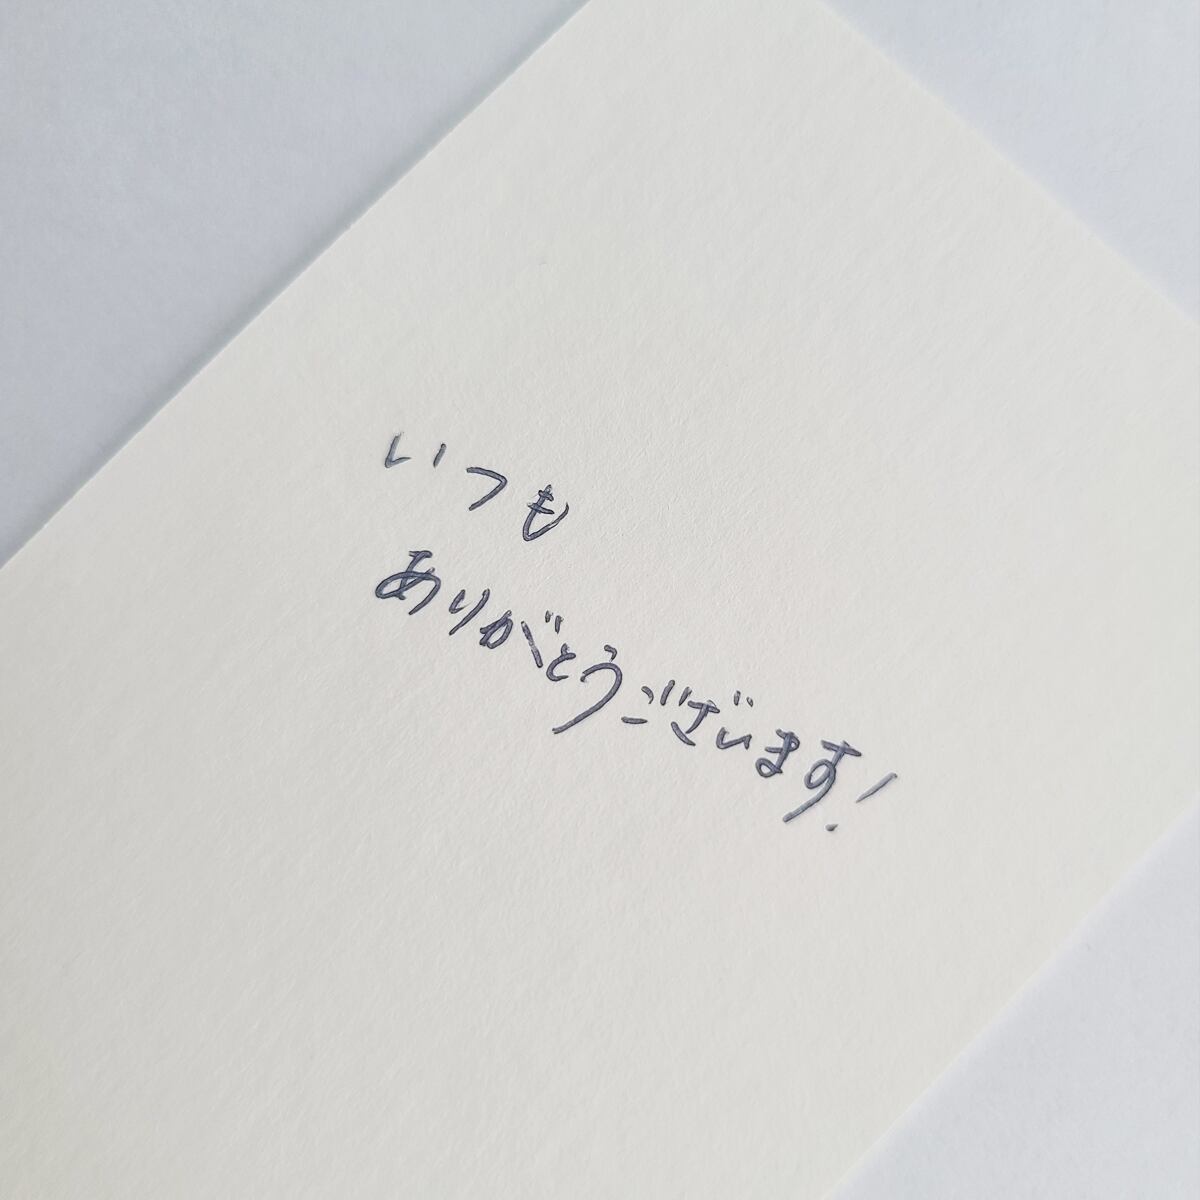 いつも
ありがとうございます!